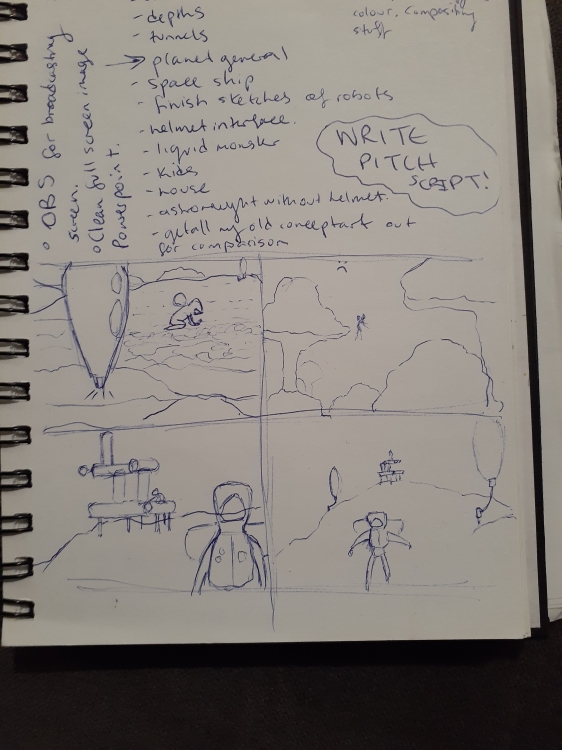 - depths
- tunnels
→ planet general
- space ship
- finish sketches of robots
- helmet interface.
- liquid monster
- kids
- house
- without helmet.
- get all my old conceptart out
for comparison
colour, compositing
stuff
WRITE
PITCH
SCRIPT!
• OBS for broadcasting
screen.
• Clean full screen image
Powerpoint.